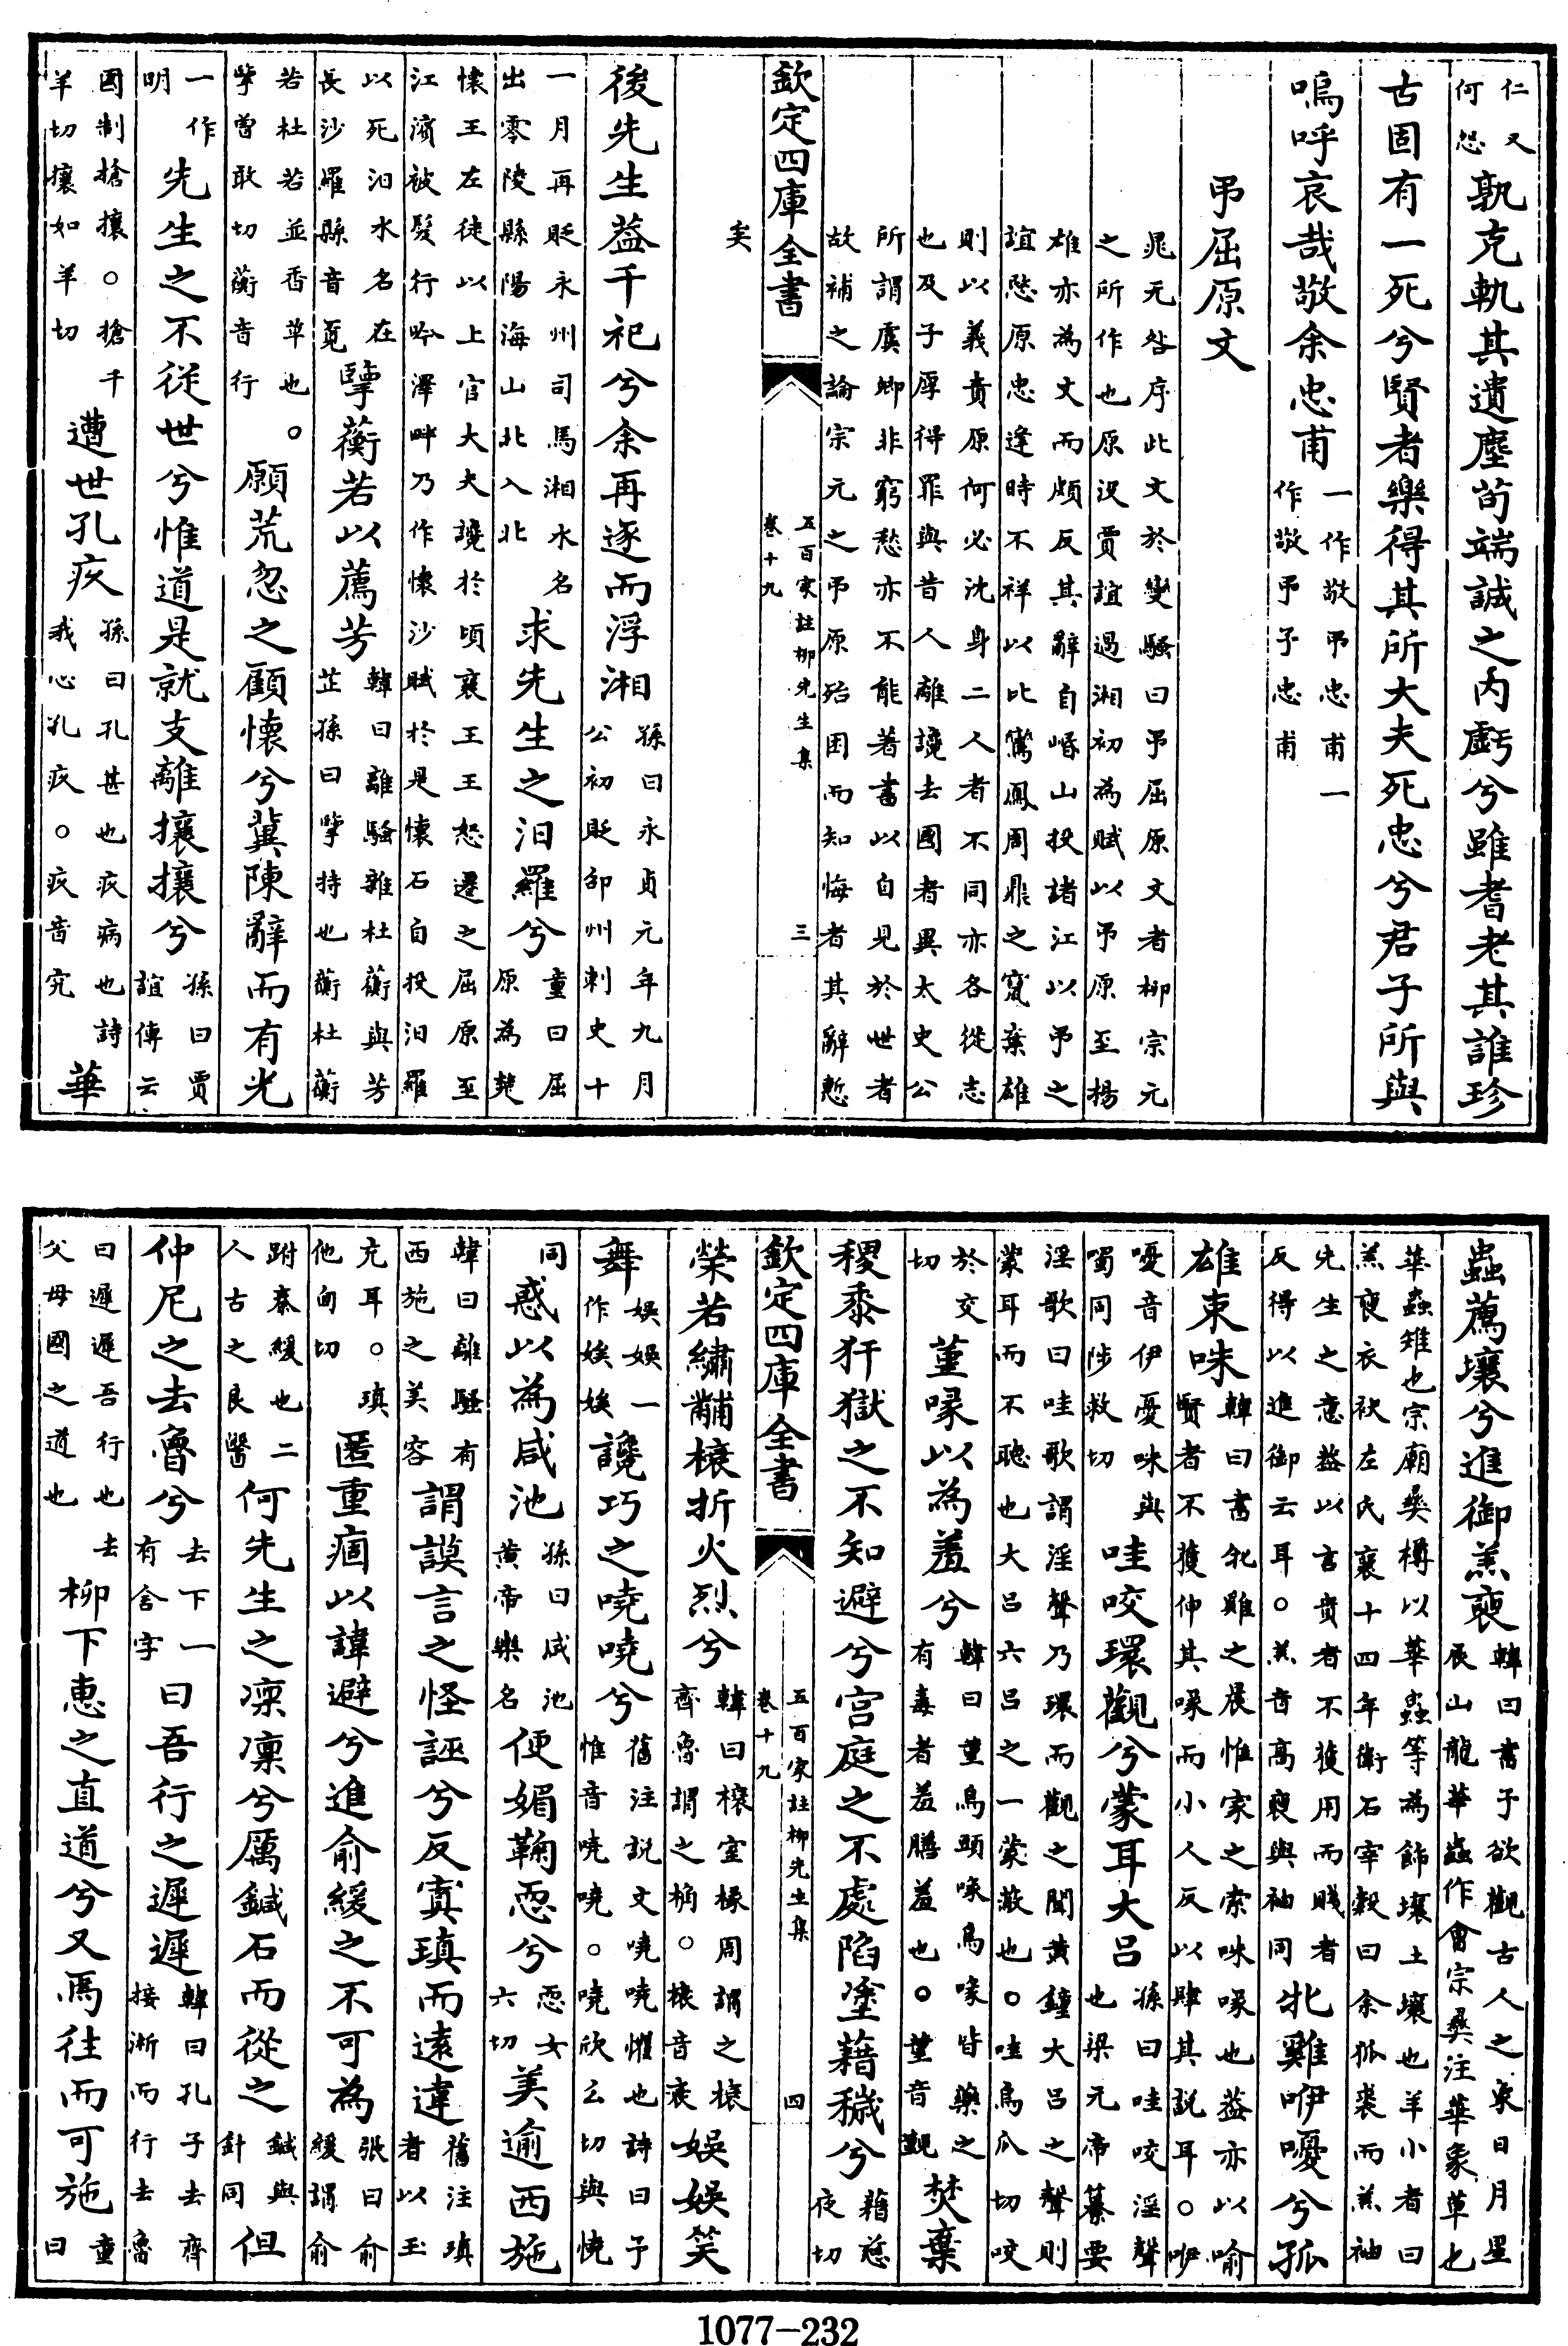 仁又何恐孰克軌其遺塵茍端誠之内虧兮雖耆老其誰珍
古固有一死兮賢者樂得其所大夫死忠兮君子所與
嗚呼哀哉敬余忠甫一作敬弔忠甫一作敬弔子忠甫
弔屈原文
晁无咎序此文於變騷曰弔屈原文者柳宗元之所作也原沒賈誼過湘初為賦以弔原至楊
雄亦為文而頗反其辭自㟭山投諸江以弔之誼愍原忠逢時不祥以比鸞鳳周鼎之竄棄雄
則以義責原何必沈身二人者不同亦各從志也及子厚得罪與昔人離讒去國者異太史公
所謂虞卿非窮愁亦不能著書以自見於世者故補之論宗元之弔原殆困而知悔者其辭慙
欽定四庫全書 五百家註柳先生集 卷十九 三
矣
後先生葢千祀兮余再逐而浮湘孫曰永貞元年九月公初貶邵州刺史十
一月再貶永州司馬湘水名出零陵縣陽海山北入北求先生之汨羅兮童曰屈原為楚
懷王左徒以上官大夫讒於頃襄王王怒遷之屈原至江濱被髮行吟澤畔乃作懷沙賦於是懷石自投汨羅
以死汨水名在長沙羅縣音覓擥蘅若以薦芳韓曰離騷雜杜蘅與芳芷孫曰擥持也蘅杜蘅
若杜若並香草也。擥魯敢切蘅音行願荒忽之顧懷兮冀陳辭而有光
一作明先生之不從世兮惟道是就支離攘攘兮孫曰賈誼傳云
國制搶攘。搶千羊切攘如羊切遭世孔疚孫曰孔甚也疚病也詩我心孔疚。疚音究華
蟲薦壤兮進御羔褎韓曰書予欲觀古人之象日月星辰山龍華蟲作㑹宗彞注華象草也
華蟲雉也宗廟彞樽以華蟲等為飾壤土壤也羊小者曰羔褎衣袂左氏襄十四年衛石宰榖曰余狐裘而羔袖
先生之意葢以言貴者不獲用而賤者反得以進御云耳。羔音高褎與袖同牝雞咿嚘兮孤
雄束咮韓曰書牝雞之晨惟家之索咮喙也葢亦以喻賢者不獲伸其喙而小人反以肆其說耳。咿
嚘音伊憂咮與噣同陟救切哇咬環觀兮蒙耳大吕孫曰哇咬淫聲也梁元帝纂要
淫歌曰哇歌謂淫聲乃環而觀之聞黃鐘大吕之聲則蒙耳而不聽也大吕六吕之一蒙蔽也。哇烏瓜切咬
於交切堇喙以為羞兮韓曰堇烏頭喙烏喙皆藥之有毒者羞膳羞也。堇音覲焚棄
稷黍犴獄之不知避兮宫庭之不處陷塗藉穢兮藉慈夜切
欽定四庫全書 五百家註柳先生集 卷十九 四
榮若繡黼榱折火烈兮韓曰榱室椽周謂之榱齊魯謂之桷。榱音衰娱娱笑
舞娱娱一作娭娭讒巧之嘵嘵兮舊注説文嘵嘵懼也詩曰予惟音嘵嘵。嘵欣么切與憢
同惑以為咸池孫曰咸池黄帝樂名便媚鞠恧兮恧女六切美逾西施
韓曰離騷有西施之美容謂謨言之怪誣兮反寘瑱而遠違舊注瑱者以玉
充耳。瑱他甸切匿重痼以諱避兮進俞緩之不可為張曰俞緩謂俞
跗秦緩也二人古之良醫何先生之凛凛兮厲鍼石而從之鍼與針同但
仲尼之去魯兮去下一有舍字曰吾行之遲遲韓曰孔子去齊接淅而行去魯
曰遲遲吾行也去父母國之道也柳下惠之直道兮又焉往而可施童曰
1077-232